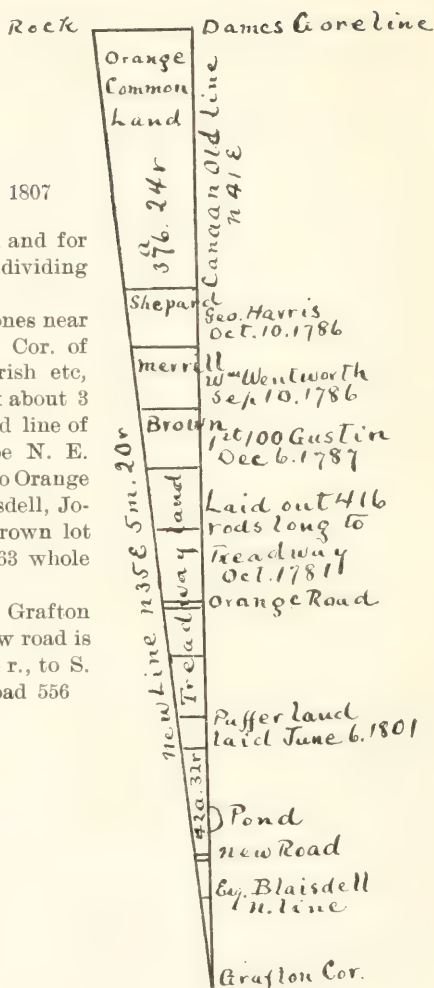 Rock Dames Gore line
Orange
Common
Land
376a. 24r
Canaan Old line
n 41 E
1807
and for
dividing
ones near
Cor. of
rish etc,
t about 3
d line of
be N. E.
o Orange
sdell, Jo-
rown lot
63 whole
Grafton
w road is
r., to S.
oad 556
Shepard
Geo. Harris
Oct. 10. 1786
Merrill
Wm Wentworth
Sep 10. 1786
Brown
1st 100 Gustin
Dec 6. 1787
New Line n 35 E 5m. 20r
Treadway land
Laid out 416
rods long to
Treadway
Oct. 1781
Orange Road
Puffer land
laid June 6. 1801
42a. 32r
Pond
new Road
Eq. Blaisdell
n. line
Grafton Cor.